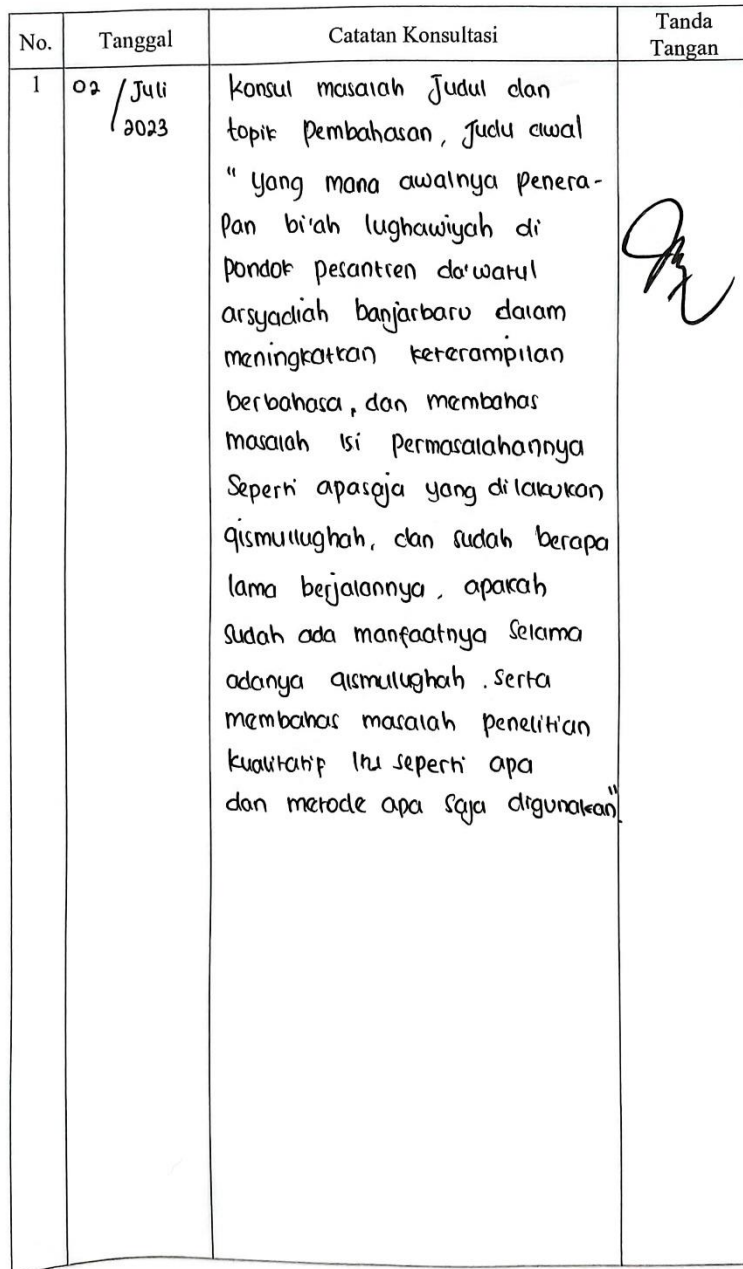 No. Tanggal Catatan Konsultasi Tanda Tangan
1 02 / Juli 2023 konsul masalah Judul dan
topik Pembahasan, Judu awal
" yang mana awalnya Penera-
Pan bi'ah lughawiyah di
Pondok pesantren da'watul
arsyadiah banjarbaru dalam
meningkatkan keterampilan
berbahasa, dan membahas
masalah isi Permasalahannya
Seperti apasaja yang dilakukan
qismullughah, dan sudah berapa
lama berjalannya, apakah
Sudah ada manfaatnya Selama
adanya qismulughah. Serta
membahas masalah penelitian
kualitatip itu seperti apa
dan metode apa saja digunakan".